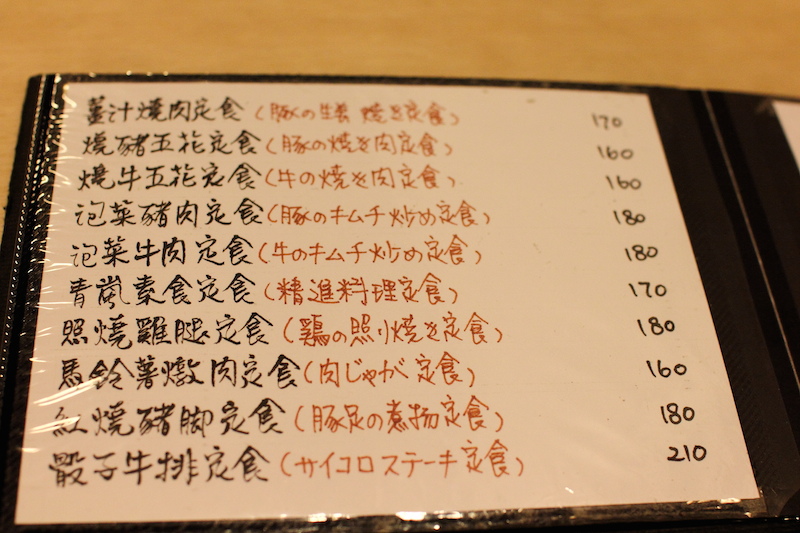 薑汁燒肉定食(豚の生姜焼き定食) 170
燒豬五花定食(豚の焼き肉定食) 160
燒牛五花定食(牛の焼き肉定食) 160
泡菜豬肉定食(豚のキムチ炒め定食) 180
泡菜牛肉定食(牛のキムチ炒め定食) 180
青嵐素食定食(精進料理定食) 170
照燒雞腿定食(鶏の照り焼き定食) 180
馬鈴薯燉肉定食(肉じゃが定食) 160
紅燒豬脚定食(豚足の煮物定食) 180
骰子牛排定食(サイコロステーキ定食) 210